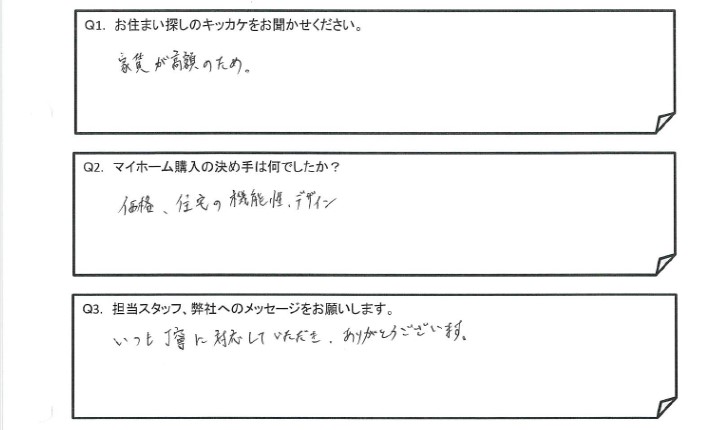 Q1. お住まい探しのキッカケをお聞かせください。
家賃が高額のため。
Q2. マイホーム購入の決め手は何でしたか？
価格、住宅の機能性、デザイン
Q3. 担当スタッフ、弊社へのメッセージをお願いします。
いつも丁寧に対応していただき、ありがとうございます。